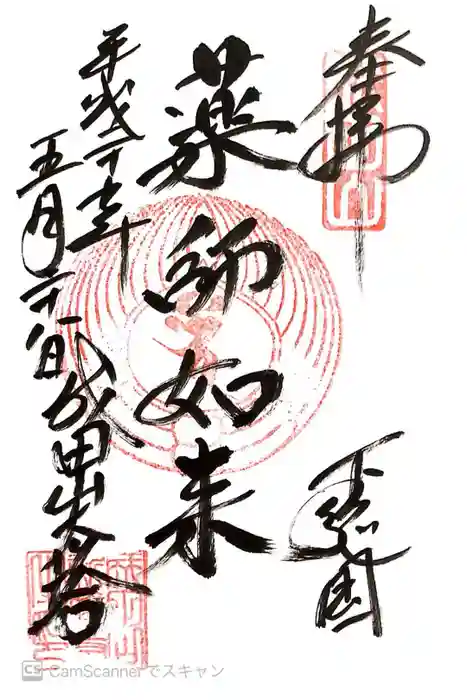 奉拝
薬師如来
平成二十年
五月二十日成田山大塔
CS CamScannerでスキャン